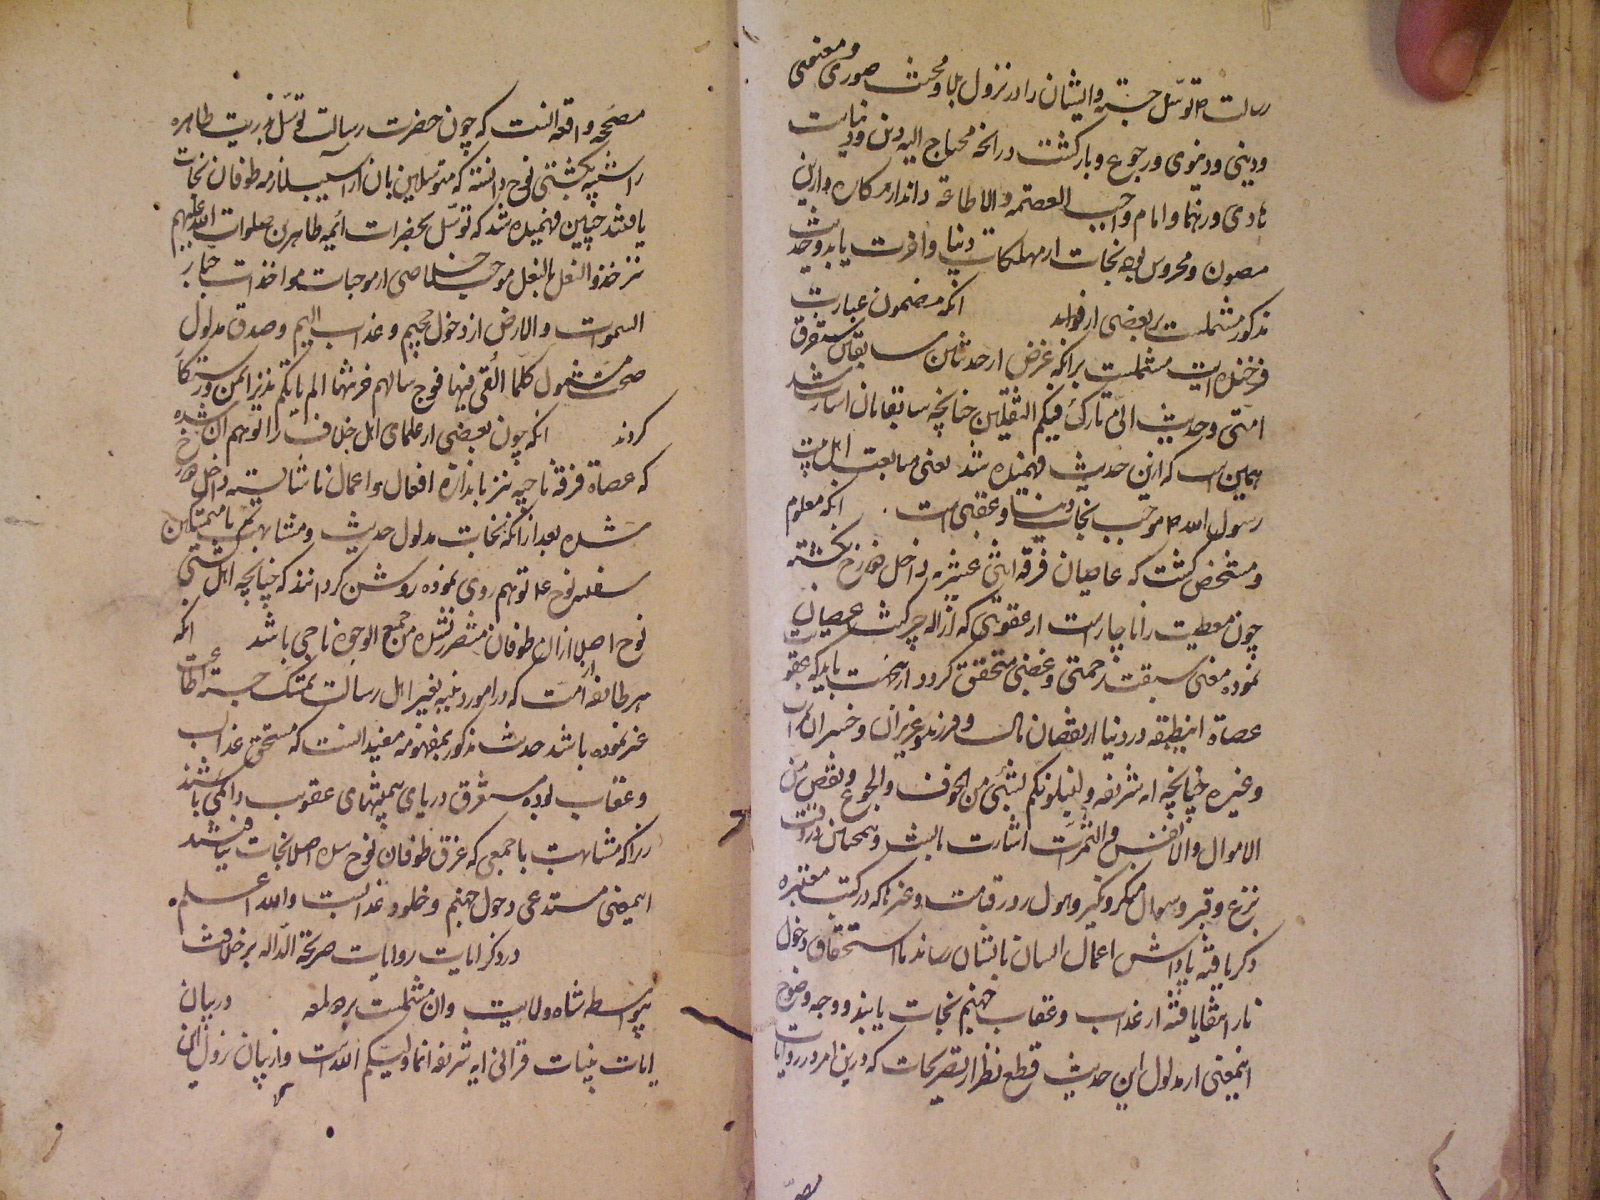 رسالت ص توسل جسته وایشان را در نزول بلا و محنت صوری و معنوی
ودینی ودنیوی ورجوع وبازگشت در انچه محتاج الیه دین ودنیاست
هادی ورهنما وامام واجب العصمه والاطاعه داند از مکاره دارین
مصون ومحروس بوده نجات از مهلکات دنیا واخرت یابد وحدیث
مذکور مشتملست بر بعضی از فواید انکه مضمون عبارت
فرخنده ایت مشتملست برانکه غرض از حدیثین سابقین ستفرق
امتی وحدیث انی تارک فیکم الثقلین چنانچه سابقا بان اشارت شد
همین است که ازین حدیث فهمیده شد یعنی متابعت اهل بیت
رسول الله ص موجب نجات دنیا وعقبی است . انکه معلوم
ومشخص گشت که عاصیان فرقه اثنی عشریه داخل دوزخ نگشته
چون معصیت را ناچار است از عقوبتی که ازاله چرک عصیان
نموده معنی سبقت رحمتی وغضبی متحقق کردد ازینجهت باید که بعقوبت
عصاة اینطبقه در دنیا از نقصان مال و فرزند و عزیزان و خسران
وغیره چنانچه ایه شریفه ولنبلونکم بشیء من الخوف والجوع ونقص من
الاموال والانفس والثمرات اشارت بانست وهمچنین در وقت
نزع وقبر وسوال منکر ونکیر وهول روز قیامت وغیرها که در کتب معتبره
ذکر یافته پاداش اعمال ایشان بایشان رساند تا استحقاق دخول
نار انتفا یافته از عذاب وعقاب جهنم نجات یابند ووجه وضوح
اینمعنی از مدلول این حدیث قطع نظر از تصریحات که درین امر در روایات
مصححه واقع انست که چون حضرت رسالت توسل بذریت طاهره
را تشبیه بکشتی نوح دانسته که متوسلین بان از آسیب لازمه طوفان نجات
یافتند چنین فهمیده شد که توسل بحضرات ائمه طاهرین صلوات الله علیهم
نیز حذو النعل بالنعل موجب خلاصی از موجبات مواخذات جبار
السموات والارض از دخول جحیم وعذاب الیم وصدق مدلول
کلما القی فیها فوج سالهم خزنتها الم یاتکم نذیر ایمن ورستکار
کردند انکه چون بعضی از علمای اهل خلاف را توهم ان شده
که عصاة فرقه ناجیه نیز باندازه افعال واعمال ناشایسته داخل دوزخ
شده بعد از انکه نجات مدلول حدیث ومشابهت بامتمسکین
سفینه نوح ع توهم روی نموده روشن کردانند که چنانچه اهل کشتی
نوح اصلا ازان طوفان متضرر نشده من جمیع الوجوه ناجی باشد انکه
هر طایفه از امت که در امور دینیه بغیر اهل رسالت تمسک جسته اطاعت
غیر نموده باشد حدیث مذکور بمفهومه مفید انست که مستحق عذاب
وعقاب بوده مستغرق دریای بی منتهای عقوبت دائمی باشند
زیرا که مشابهت با جمعی که غرق طوفان نوح شده اصلا نجات نیافتند
اینمعنی مستدعی دخول جهنم وخلود عذابست والله اعلم .
در ذکر ایات روایات صریحة الدلاله بر خلافت
بیواسطه شاه ولایت وان مشتملست بر دو لمعه در بیان
ایات بینات قرانی ایه شریفه انما ولیکم الله است واز بیان نزول این